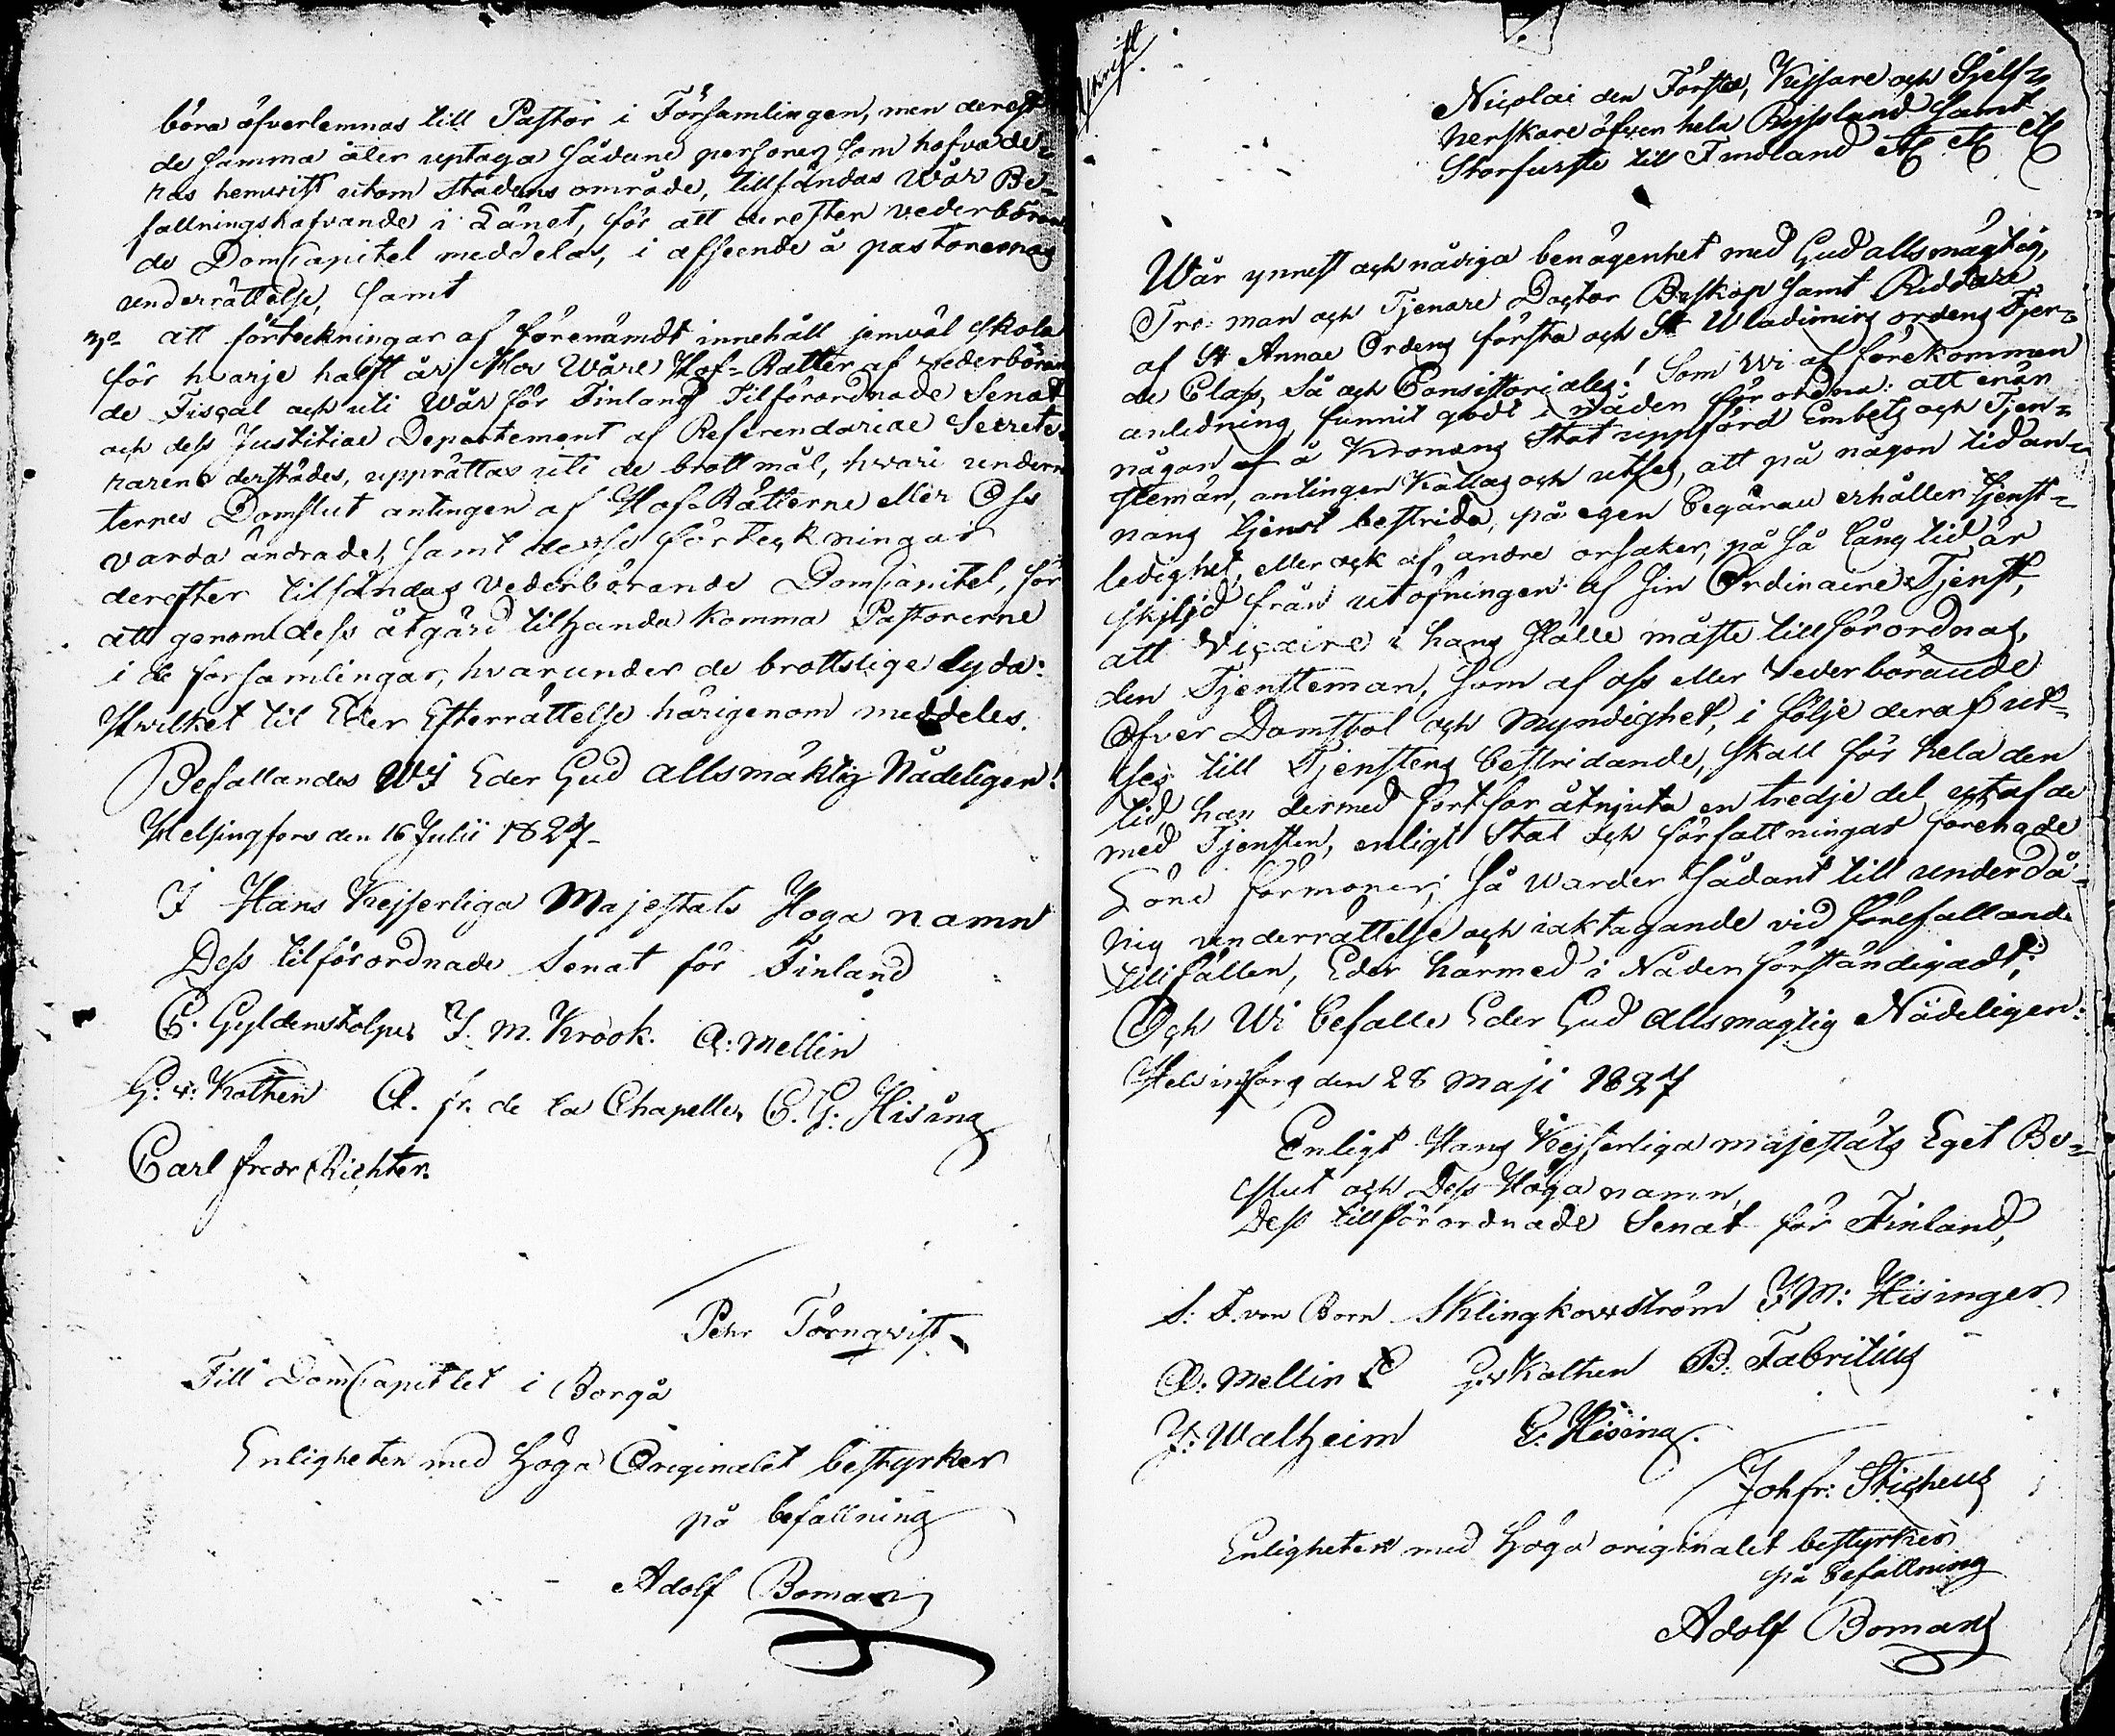 böra öfverlemnas till Pastor i Församlingen, men derest
de samma äler uptaga sådane personer som hafva de-
ras hemvist utom stadens område, tillsändas Wår Be-
fallningshafvande i Länet, för att derefter vederböran
de DomCapitel meddelas, i afseende å pastorernas
underrättelse, samt
3o att förteckningar af förenämdt innehåll jemväl skola
för hvarje halft år hos Wåre Hof-Rätter af vederböran
de Fiscal och uti Wår för Finland Tilförordnade Senat
och dess Justitiae Departement af Referendariae Secrete-
raren derstädes, upprättas uti de brottmål, hvari underr
ternes Domslut antingen af Hof-Rätterne eller Oss
varda ändrade, samt desse förteckningar
derefter tilsändas vederbörande DomCapitel, för
att genom dess åtgärd tilhanda komma Pastorerne
i de församlingar, hvarunder de brottslige lyda:
Hwilket til Eder Efterrättelse härigenom meddeles.
Befallandes Wi Eder Gud allsmäktig Nådeligen!
Helsingfors den 16 Julii 1827-
I Hans Kejserliga Majestäts Höga namn
Dess tilförordnade Senat för Finland
C. Gyldenstolpe, J. M. Krook. A: Mellin
G: v: Kothen A. fr. de la Chapelle, C. G. Hising
Carl fredr Richter.
Pehr Törnqvist
Till DomCapitlet i Borgå
Enligheten med höga Originalet bestyrker
på befallning
Adolf Boman
Afskrift
Nicolai den Förste, Kejsare och Sjelf-
herskare öfver hela Ryssland samt
Storfurste till Finland etc etc etc
Wår ynnest och nådiga benägenhet med Gud allsmägtig,
Tro-man och Tjenare Doctor Biskop samt Riddare
af St Annae Ordens första och St Wladimirs ordens Fjer-
de Class, Så och Consistoriales! Som Wi af förekommen
anledning funnit godt i nåden förordna: att enär
någon af å Kronans Stat uppförd Embets och Tjen-
stemän, antingen Kallas och utses, att på någon tid an-
nans tjenst bestrida, på egen begäran erhåller tjenst-
ledighet, eller ock af andre orsaker, på så lång tid är
skiljd från utöfningen af sin Ordinarie Tjenst,
att Vicaire i hans ställe måste tillförordnas,
den Tjensteman, som af oss eller Vederbörande
Öfver Domstol och Myndighet, i följe deraf ut-
ses till Tjenstens bestridande, skall för hela den
tid, han dermed fortfar åtnjuta en tredje del utaf de
med Tjensten, enligt Stat och författningar förenade
Löne förmoner; så warder sådant till underdå-
nig underrättelse och iakttagande vid förefallande
tillfällen, Eder härmed i Nåder förständigadt;
Och Wi befalle Eder Gud Allsmägtig Nådeligen:
Helsingfors den 28 Maji 1827
Enligt Hans Kejserliga majestäts Eget Be-
slut och Dess Höga namn,
Dess tillförordnade Senat för Finland,
S. F. von Born Klingkowström J M: Hisinger
A. Mellin G. v Kothen B. Fabritius
J: Walheim C. Hising.
Joh fr: Stichæus
Enligheten med höga originalet bestyrker
på befallning
Adolf Boman